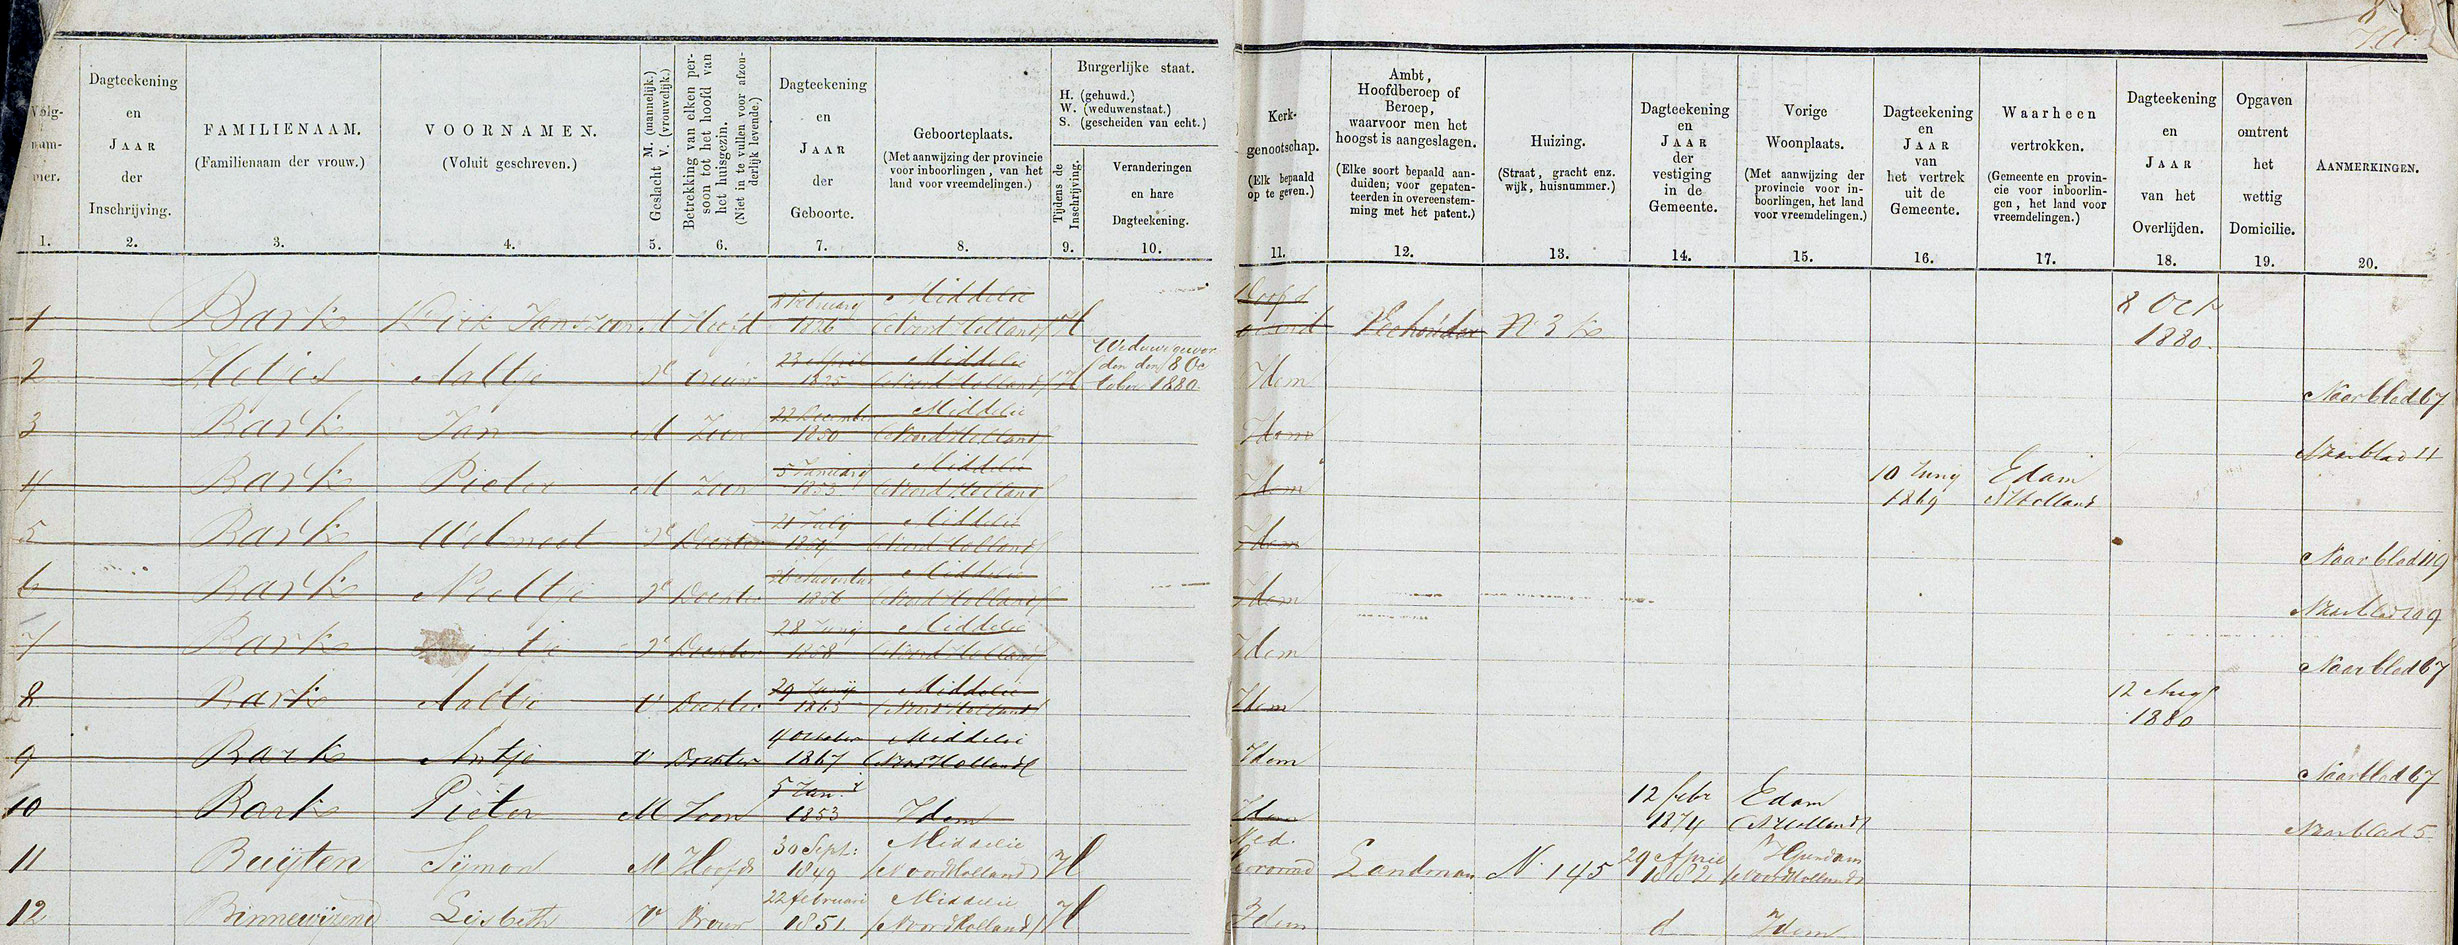 Volg-
num-
mer.
1.
Dagteekening
en
JAAR
der
Inschrijving.
2.
FAMILIENAAM.
(Familienaam der vrouw.)
3.
VOORNAMEN.
(Voluit geschreven.)
4.
Geslacht M. (mannelijk.)
V. (vrouwelijk.)
5.
Betrekking van elken per-
soon tot het hoofd van
het huisgezin.
(Niet in te vullen voor afzon-
derlijk levende.)
6.
Dagteekening
en
JAAR
der
Geboorte.
7.
Geboorteplaats.
(Met aanwijzing der provincie
voor inboorlingen, van het
land voor vreemdelingen.)
8.
Burgerlijke staat.
H. (gehuwd.)
W. (weduwenstaat.)
S. (gescheiden van echt.)
Tijdens de
Inschrijving.
9.
Veranderingen
en hare
Dagteekening.
10.
Kerk-
genootschap.
(Elk bepaald
op te geven.)
11.
Ambt,
Hoofdberoep of
Beroep,
waarvoor men het
hoogst is aangeslagen.
(Elke soort bepaald aan-
duiden; voor gepaten-
teerden in overeenstem-
ming met het patent.)
12.
Huizing.
(Straat, gracht enz.
wijk, huisnummer.)
13.
Dagteekening
en
JAAR
der
vestiging
in de
Gemeente.
14.
Vorige
Woonplaats.
(Met aanwijzing der
provincie voor in-
boorlingen, het land
voor vreemdelingen.)
15.
Dagteekening
en
JAAR
van
het vertrek
uit de
Gemeente.
16.
Waarheen
vertrokken.
(Gemeente en provin-
cie voor inboorlin-
gen, het land voor
vreemdelingen.)
17.
Dagteekening
en
JAAR
van het
Overlijden.
18.
Opgaven
omtrent
het
wettig
Domicilie.
19.
AANMERKINGEN.
20.
1 Bark Dirk Janszoon M Hoofd 8 Februarij 1826 Middelie (Noord Holland) H Doopsgezind Veehouder N 3 k 8 Oct 1880
2 Aaltje V Vrouw 23 April 1825 Middelie (Noord Holland) H Weduwe gewor den den 8 Oc tober 1880 Idem Naar blad 67
3 Bark Jan M Zoon 22 December 1850 Middelie (Noord Holland) Idem Naar blad 11
4 Bark Pieter M Zoon 5 Januarij 1853 Middelie (Noord Holland) Idem 10 Junij 1869 Edam N Holland
5 Bark Welmoet V Dochter 21 Julij Middelie (Noord Holland) Idem Naar blad 119
6 Bark Neeltje V Dochter 1856 Middelie (Noord Holland) Idem Naar blad 109
7 Bark V Dochter 28 Junij 1858 Middelie (Noord Holland) Idem Naar blad 67
8 Bark Aaltje V Dochter 29 Junij 1863 Middelie (Noord Holland) Idem 12 Aug 1880
9 Bark Antje V Dochter 4 October 1867 Middelie (Noord Holland) Idem Naar blad 67
10 Bark Pieter M Zoon 5 Jan. 1853 Idem Idem 12 febr 1874 Edam (N Holland) Naar blad 5
11 Buijten Sijmon M Hoofd 30 Sept: 1849 Middelie (Noord Holland) H Ned. Gereformd Landman N. 145 29 April 1882 Ilpendam (Noord Holland)
12 Binnewijzend Lijsbeth V Vrouw 22 februari 1851 Middelie (Noord Holland) H Idem d Idem